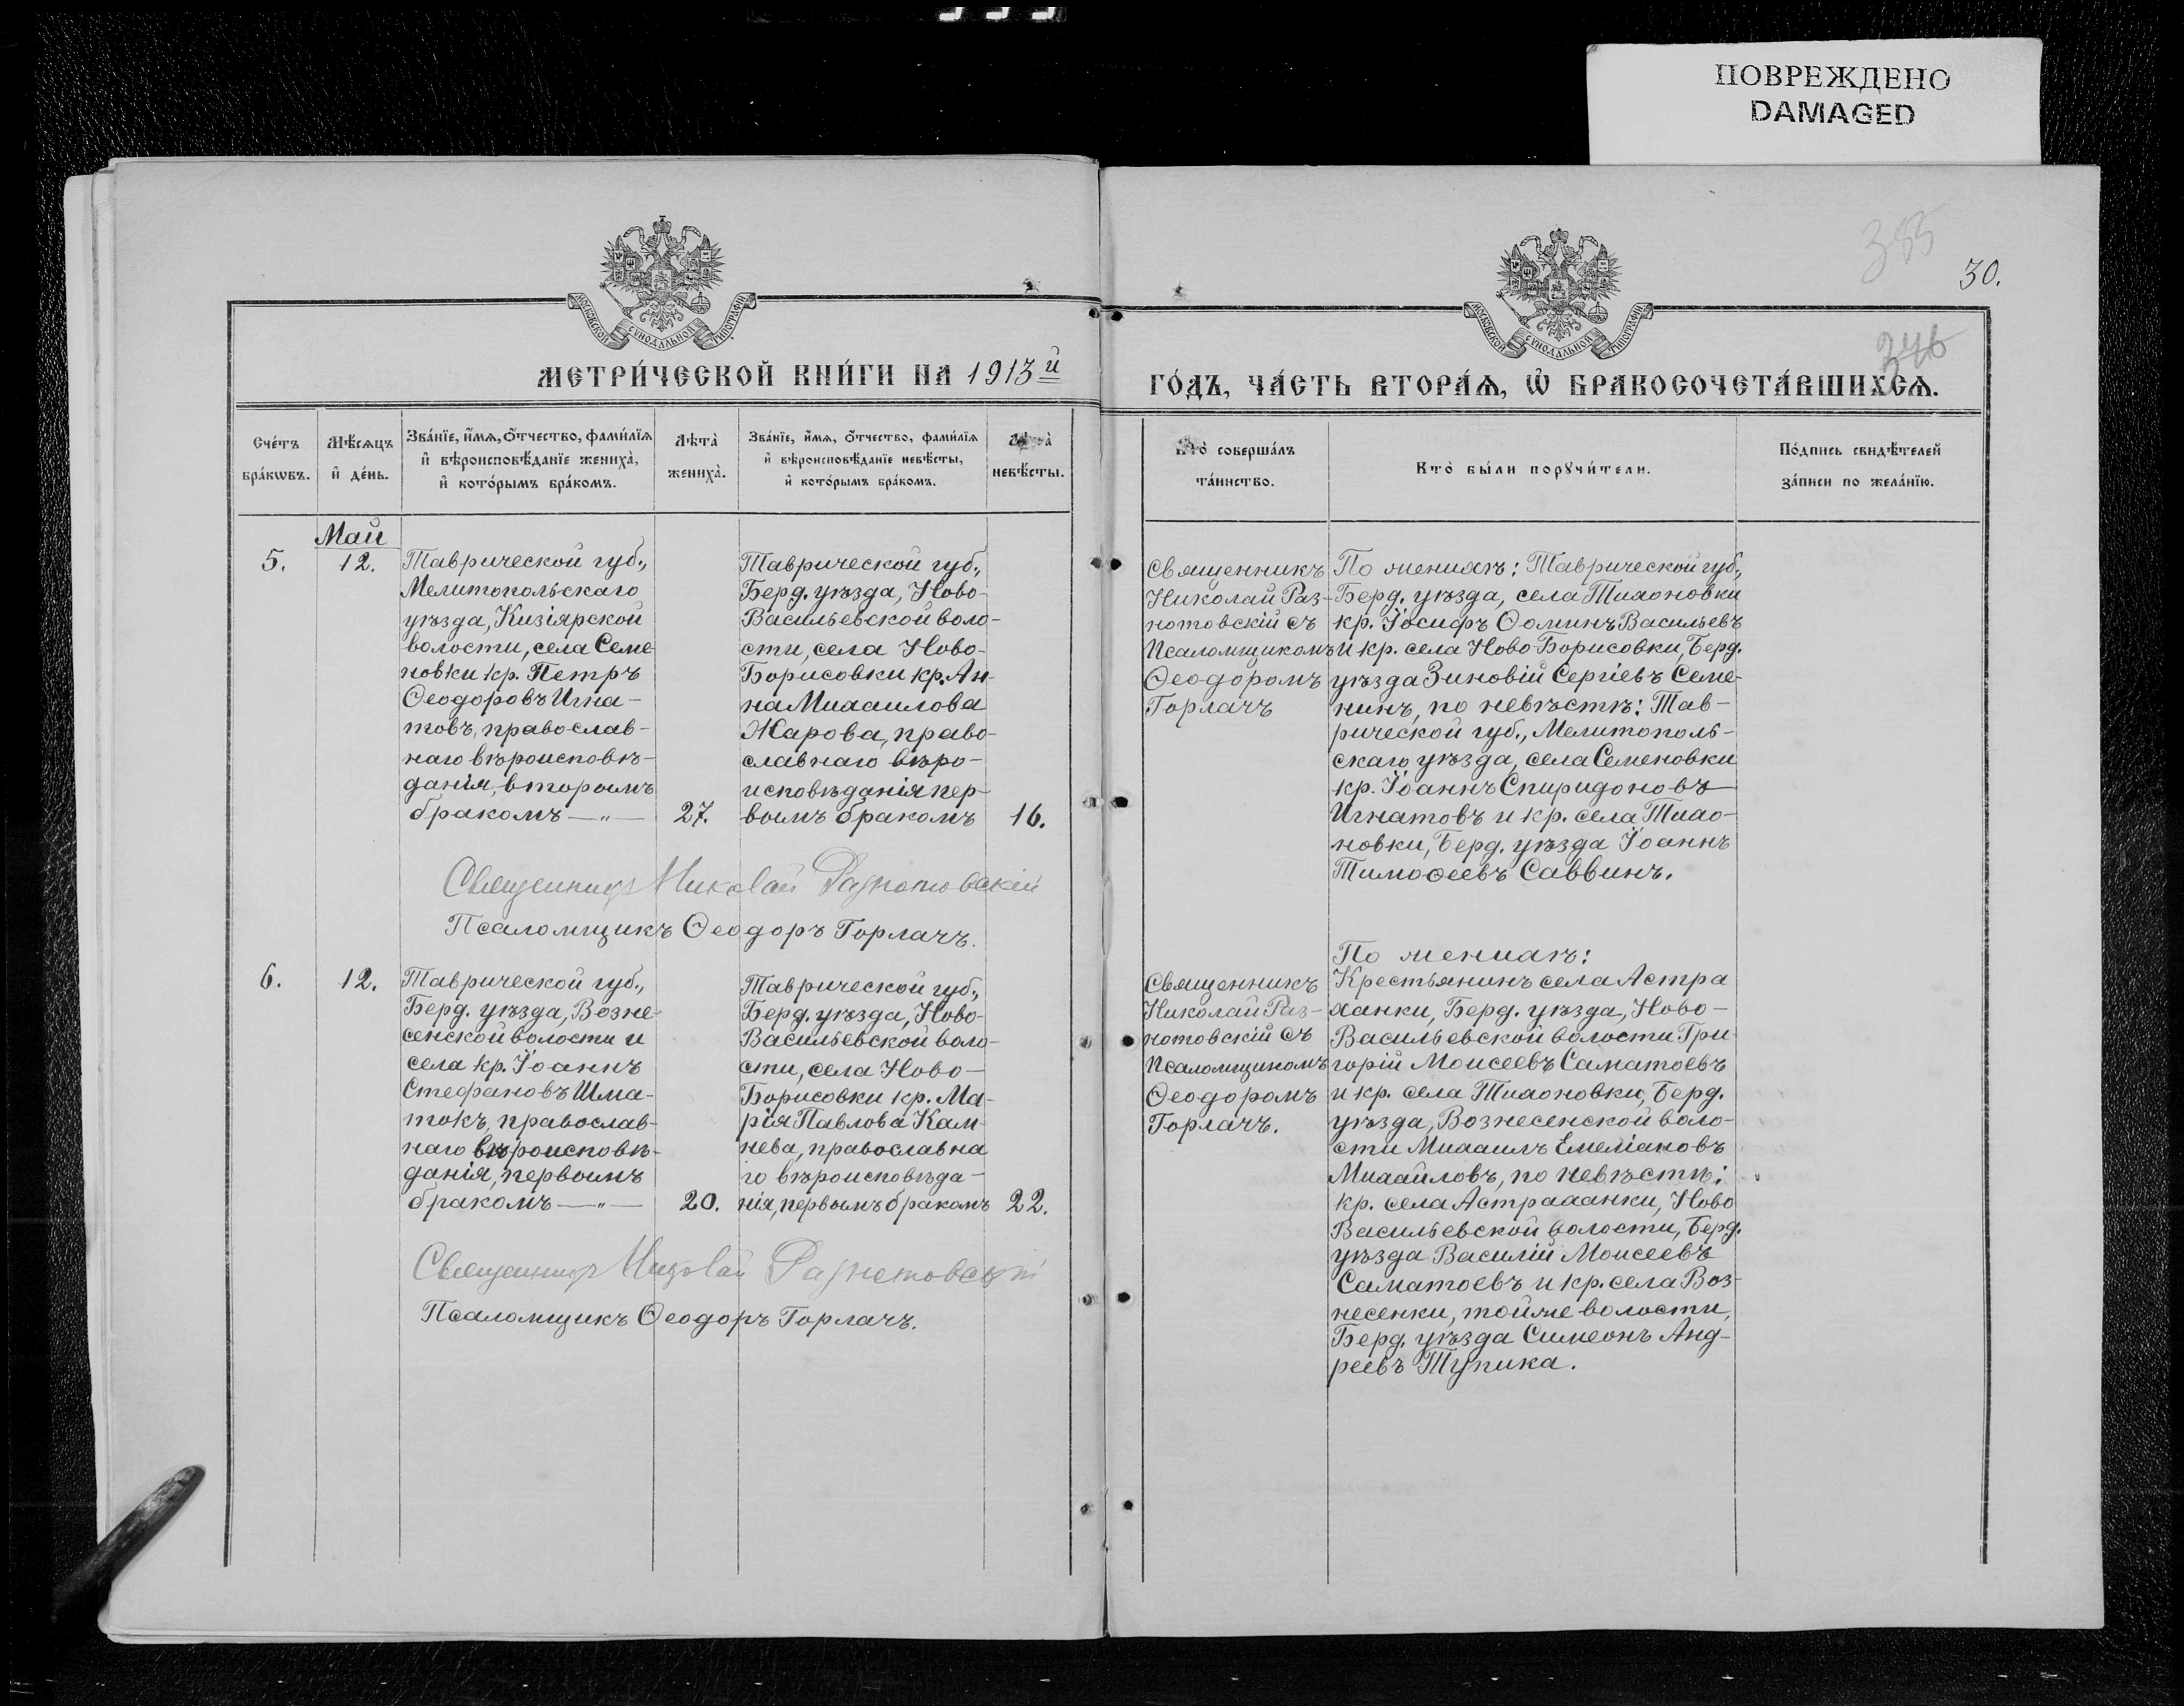 ПОВРЕЖДЕНО
DAMAGED
385
30.
346
МОСКОВСКОЙ СУНОДАЛЬНОЙ ТИПОГРАФІИ
МОСКОВСКОЙ СУНОДАЛЬНОЙ ТИПОГРАФІИ
МЕТРИ́ЧЕСКОЙ КНИ́ГИ НА 1913й
ГО́ДЪ, ЧА́СТЬ ВТОРА́Ѧ, Ѡ҆ БРАКОСОЧЕТА́ВШИХСѦ.
Сче́тъ
бра́кѡвъ.
Мѣ́сѧцъ
и҆ де́нь.
Зва́нїе, и҆́мѧ, ѻ҆́тчество, фами́лїѧ
и҆ вѣроисповѣ́данїе жениха̀,
и҆ кото́рымъ бра́комъ.
Лѣта̀
жениха̀.
Зва́нїе, и҆́мѧ, ѻ҆́тчество, фами́лїѧ
и҆ вѣроисповѣ́данїе невѣ́сты,
и҆ кото́рымъ бра́комъ.
Лѣта̀
невѣ́сты.
Кто̀ соверша́лъ
та́инство.
Кто̀ бы́ли порꙋчи́тели.
По́дпись свидѣ́телей
за́писи по жела́нїю.
Май
5.
12.
Таврической губ.,
Мелитопольскаго
уѣзда, Кизіярской
волости, села Семе-
новки кр. Петръ
Ѳеодоровъ Игна-
товъ, православ-
наго вѣроисповѣ-
данія, вторымъ
бракомъ —„—
27.
Таврической губ.,
Берд. уѣзда, Ново-
Васильевской воло-
сти, села Ново-
Борисовки кр. Ан-
на Михаилова
Жарова, право-
славнаго вѣро-
исповѣданія пер-
вымъ бракомъ
16.
Священникъ
Николай Раз-
нотовскій съ
Псаломщикомъ
Ѳеодоромъ
Горлачъ
По женихѣ: Таврической губ.,
Берд. уѣзда, села Тихоновки
кр. Іосифъ Ѳоминъ Васильевъ
и кр. села Ново Борисовки, Берд.
уѣзда Зиновій Сергіевъ Семе-
нинъ, по невѣстѣ: Тав-
рической губ., Мелитополь-
скаго уѣзда, села Семеновки
кр. Іоаннъ Спиридоновъ
Игнатовъ и кр. села Тихо-
новки, Берд. уѣзда Іоаннъ
Тимоѳеевъ Саввинъ.
Священникъ Николай Разнотовскій
Псаломщикъ Ѳеодоръ Горлачъ.
6.
12.
Таврической губ.,
Берд. уѣзда, Возне-
сенской волости и
села кр. Іоаннъ
Стефановъ Шма-
токъ, православ-
наго вѣроисповѣ-
данія, первымъ
бракомъ —„—
20.
Таврической губ.,
Берд. уѣзда, Ново-
Васильевской воло-
сти, села Ново-
Борисовки кр. Ма-
рія Павлова Кам-
нева, православна
го вѣроисповѣда-
нія, первымъ бракомъ
22.
Священникъ
Николай Раз-
нотовскій съ
Псаломщикомъ
Ѳеодоромъ
Горлачъ.
По женихѣ:
Крестьянинъ села Астра
ханки, Берд. уѣзда, Ново-
Васильевской волости Гри-
горій Моисеевъ Саматоевъ
и кр. села Тихоновки, Берд.
уѣзда, Вознесенской воло-
сти Михаилъ Емеліановъ
Михайловъ, по невѣстѣ:
кр. села Астраханки, Ново
Васильевской волости, Берд.
уѣзда Василій Моисеевъ
Саматоевъ и кр. села Воз-
несенки, той же волости,
Берд. уѣзда Симеонъ Анд-
реевъ Тупика.
Священникъ Николай Разнотовскій
Псаломщикъ Ѳеодоръ Горлачъ.